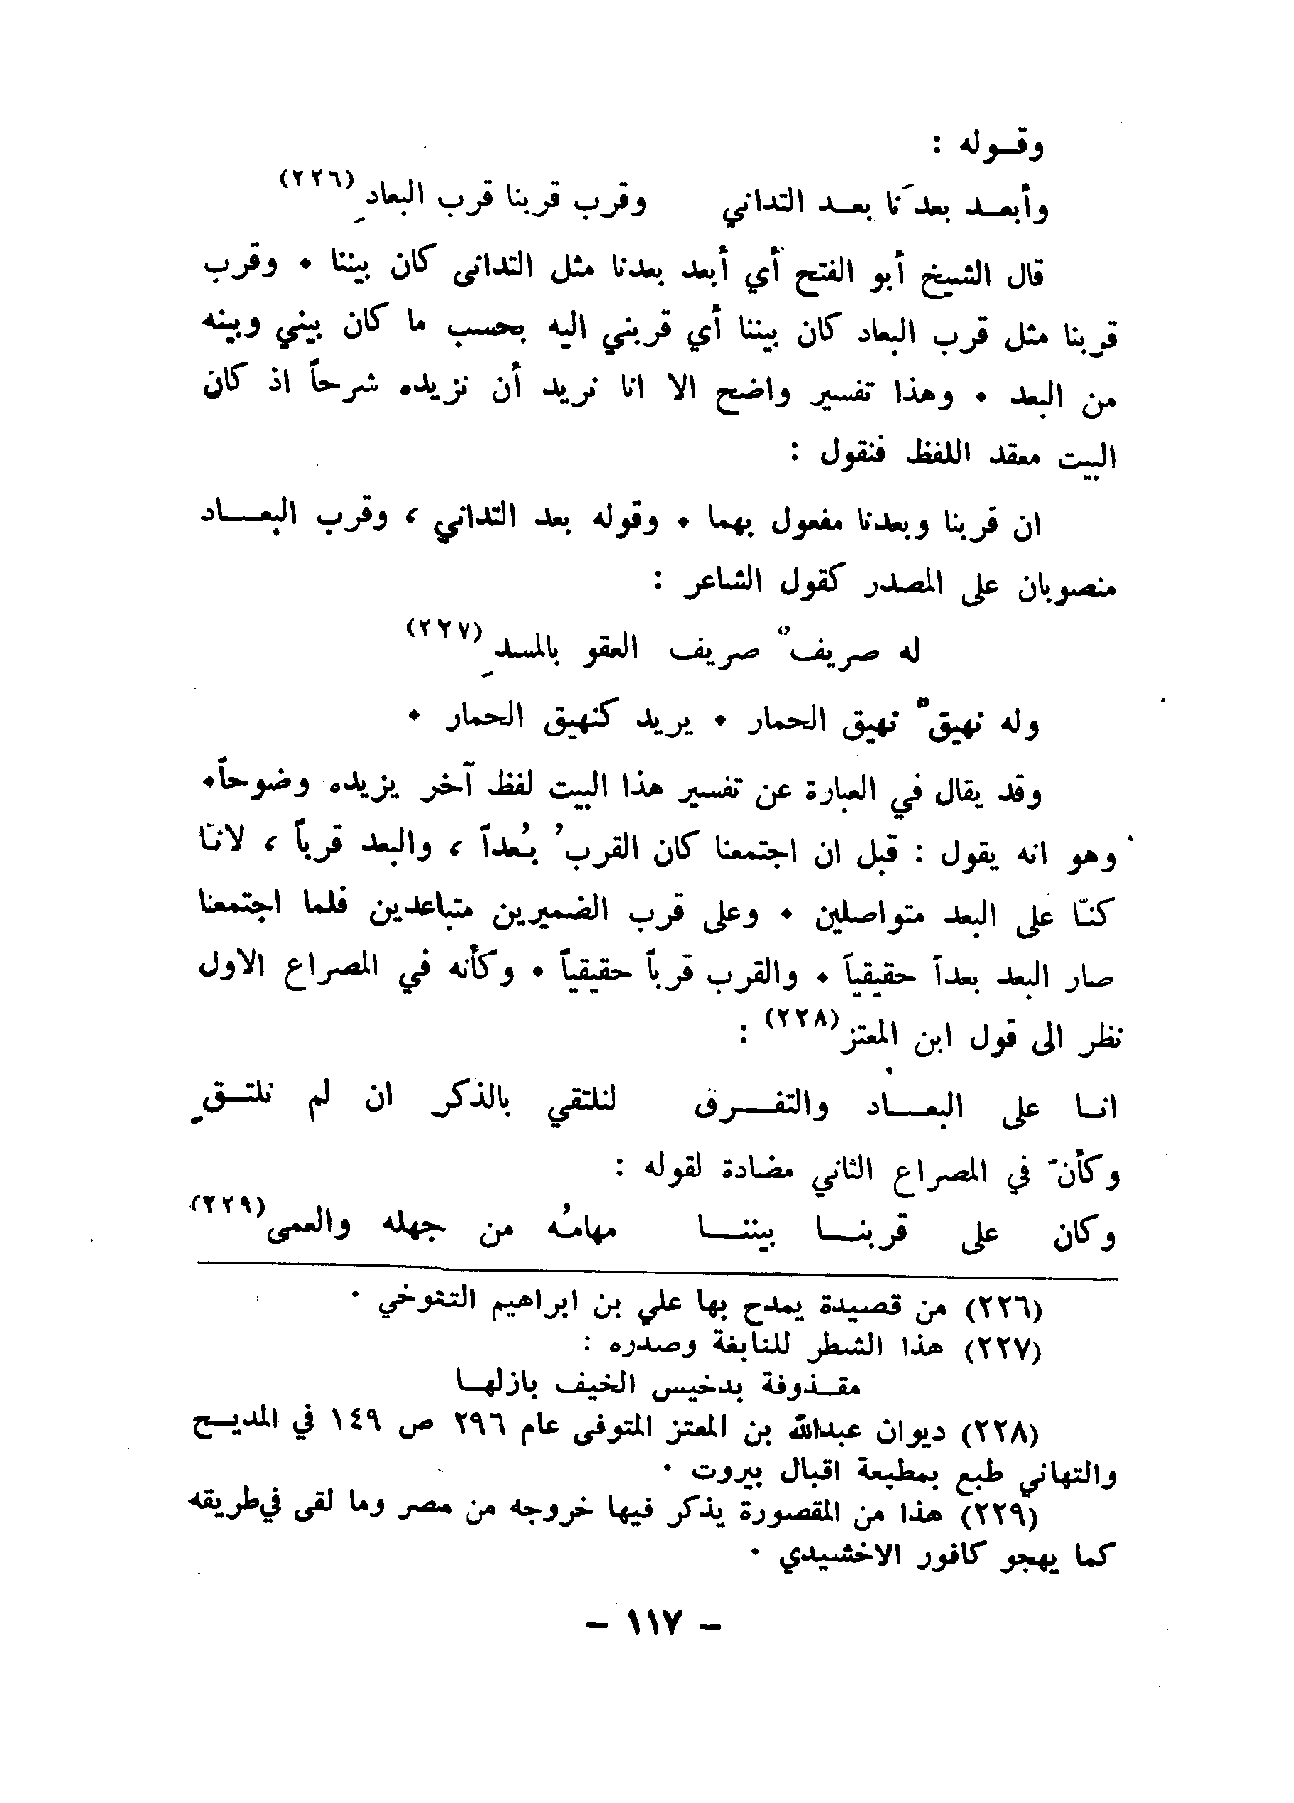 وقـوله :
وأبعـد بعدَنا بعـد التداني وقرب قربنا قرب البعادِ (٢٢٦)
قال الشيخ أبو الفتح أي أبعد بعدنا مثل التدانى كان بيننا ٠ وقرب
قربنا مثل قرب البعاد كان بيننا أي قربني اليه بحسب ما كان بيني وبينه
من البعد ٠ وهذا تفسير واضح الا انا نريد أن نزيده شرحاً اذ كان
البيت معقد اللفظ فنقول :
ان قربنا وبعدنا مفعول بهما ٠ وقوله بعد التداني ، وقرب البعـــاد
منصوبان على المصدر كقول الشاعر :
له صريفٌ صريف العقو بالمسدِ (٢٢٧)
وله نهيقٌ نهيق الحمار ٠ يريد كنهيق الحمار ٠
وقد يقال في العبارة عن تفسير هذا البيت لفظ آخر يزيده وضوحاً٠
وهو انه يقول : قبل ان اجتمعنا كان القربُ بُعداً ، والبعد قرباً ، لانّا
كنّا على البعد متواصلين ٠ وعلى قرب الضميرين متباعدين فلما اجتمعنا
صار البعد بعداً حقيقياً ٠ والقرب قرباً حقيقياً ٠ وكأنه في المصراع الاول
نظر الى قول ابن المعتز (٢٢٨) :
انـا على البعـــاد والتفـــرق لنلتقي بالذكر ان لم نلتـــقِ
وكأنّ في المصراع الثاني مضادة لقوله :
وكان على قربنـــا بيننـــا مهامُه من جهله والعمى (٢٢٩)
(٢٢٦) من قصيدة يمدح بها علي بن ابراهيم التنوخي ٠
(٢٢٧) هذا الشطر للنابغة وصدره :
مقـذوفة بدخيس الخيف بازلهـا
(٢٢٨) ديوان عبدالله بن المعتز المتوفى عام ٢٩٦ ص ١٤٩ في المديـح
والتهاني طبع بمطبعة اقبال بيروت ٠
(٢٢٩) هذا من المقصورة يذكر فيها خروجه من مصر وما لقى في طريقه
كما يهجو كافور الاخشيدي ٠
– ١١٧ –